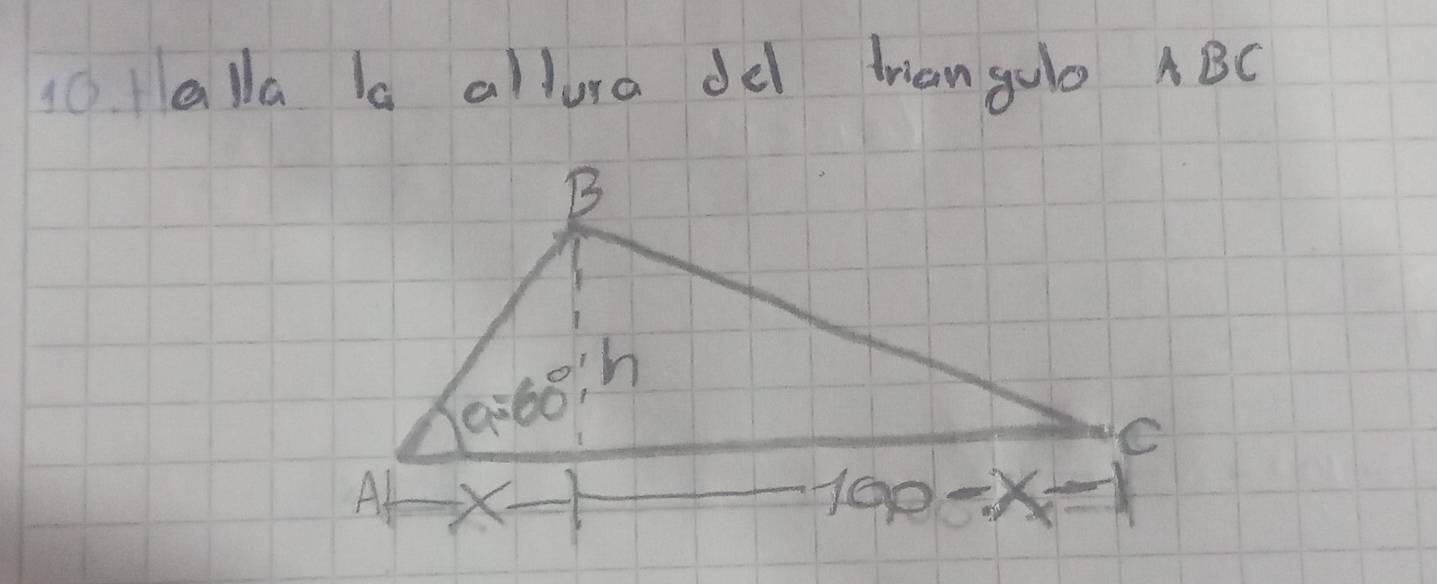 10. Halla la altura del triangulo ABC
B
a=60° h
A C
x 100-x